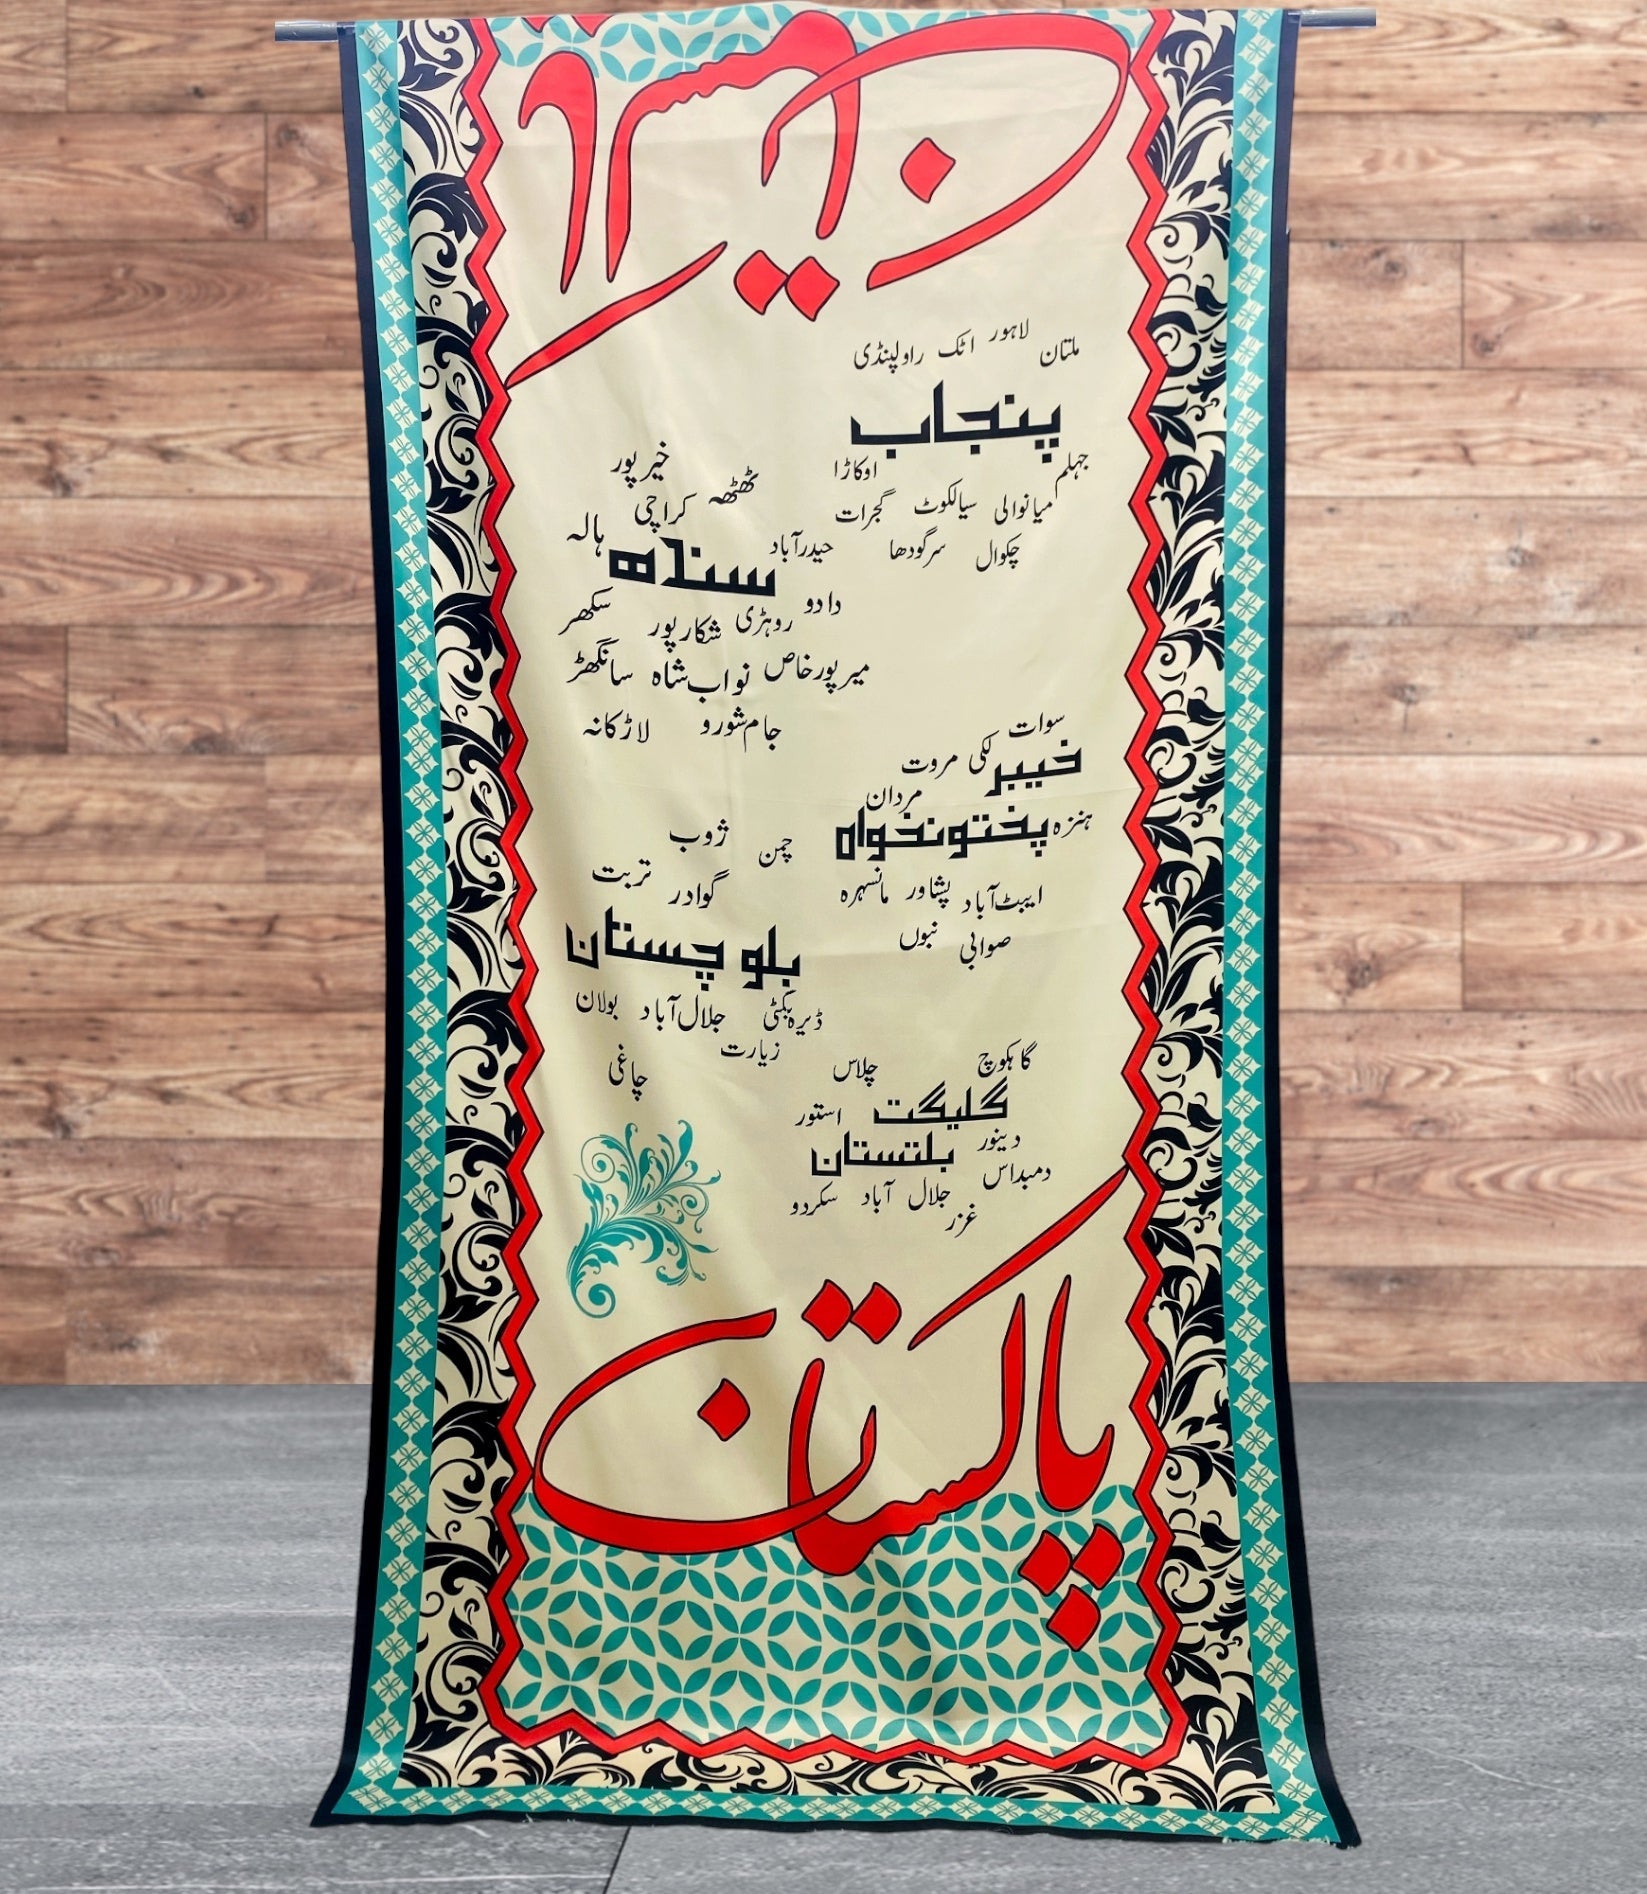 پاکستان
ملتان لاہور اٹک راولپنڈی
پنجاب
جہلم اوکاڑا
میانوالی سیالکوٹ گجرات
چکوال سرگودھا
خیرپور
ٹھٹھہ کراچی ہالہ
حیدرآباد
سندھ
دادو روہڑی شکارپور سکھر
میرپورخاص نواب شاہ سانگھڑ
جام شورو لاڑکانہ
سوات
لکی مروت
خیبر
مردان
ہنزہ
پختونخواہ
ایبٹ آباد پشاور مانسہرہ
صوابی
ژوب
چمن
تربت
گوادر
بلوچستان
ڈیرہ بگٹی جلال آباد بولان
زیارت
چاغی
گاہکوچ چلاس
گلیگت
استور
دینور
بلتستان
دمبداس
جلال آباد سکردو
غزر
پاکستان